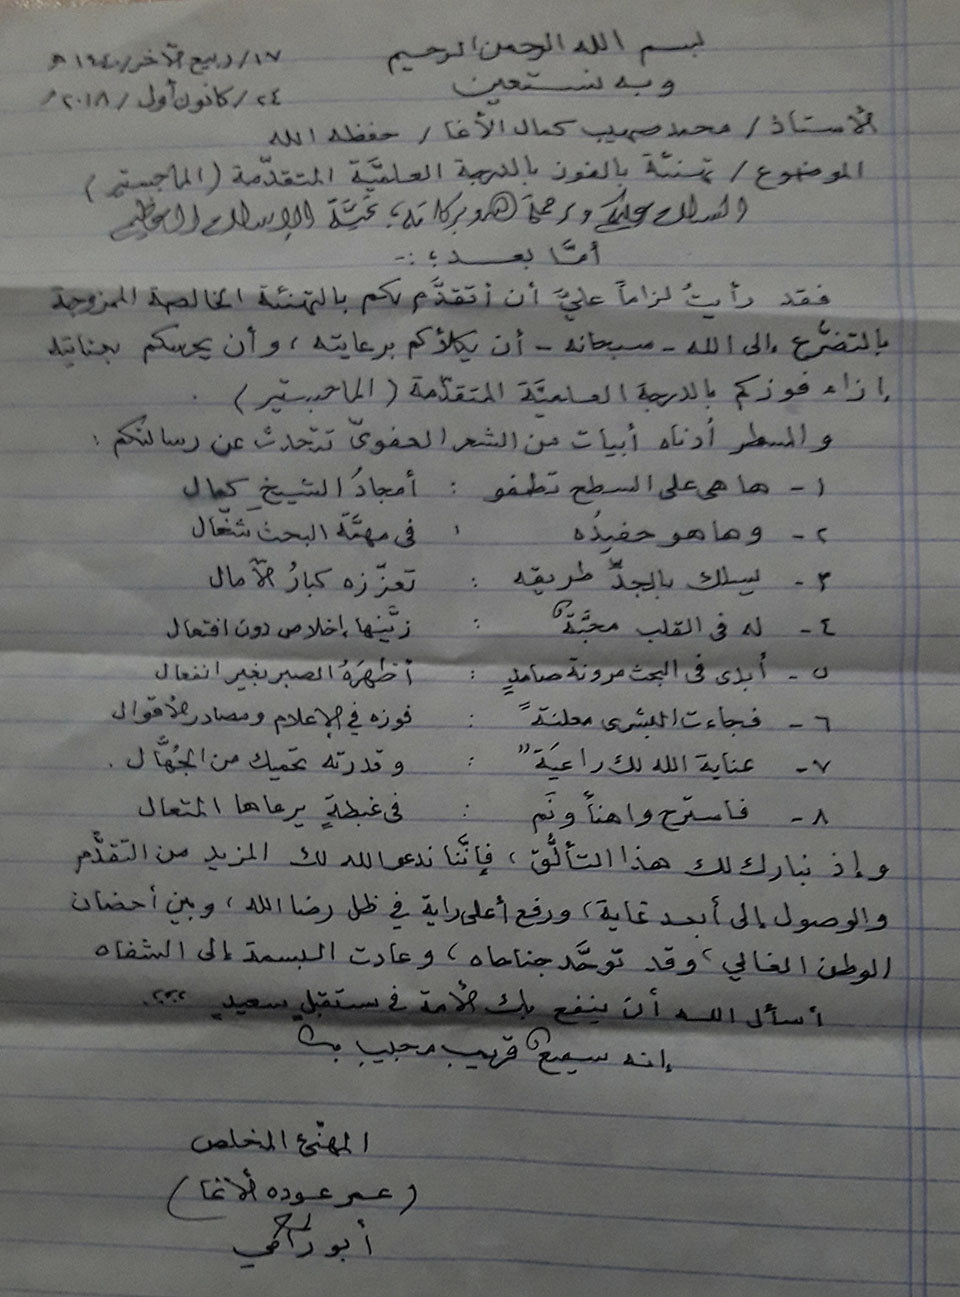 بسم الله الرحمن الرحيم
١٧/ ربيع الآخر/ ١٤٤٠هـ
وبه نستعين
٢٤/ كانون أول/ ٢٠١٨م
الأستاذ/ محمد صهيب كمال الأغا/ حفظه الله
الموضوع/ تهنئة بالفوز بالدرجة العلميَّة المتقدّمة (الماجستير)
السلام عليكم ورحمة الله وبركاته، تحيَّة الإسلام العظيم
أمَّا بعد؛ :-
فقد رأيتُ لزاماً عليَّ أن أتقدَّم لكم بالتهنئة الخالصة الممزوجة
بالتضرّع إلى الله - سبحانه - أن يكلأكم برعايته، وأن يحرسكم بعنايته
إزاء فوزكم بالدرجة العلميَّة المتقدّمة (الماجستير).
والسطر أدناه أبيات من الشعر العفويّ تتحدث عن رسالتكم:
١- ها هى على السطح تطفو : أمجادُ الشيخِ كمال
٢- وها هو حفيدُه : فى مهمَّة البحث شغَّال
٣- يسلك بالجدِّ طريقه : تعزّزه كبارُ الآمال
٤- له فى القلب محبَّةٌ : زيَّنها إخلاص دون افتعال
٥- أبدى فى البحث مرونة صامدٍ : أظهرَهُ الصبر بغير انفعال
٦- فجاءت البشرى معلنةً : فوزه في الإعلام ومصادر الأقوال
٧- عناية الله لك راعيَةٌ : وقدرته تحميك من الجُهَّال.
٨- فاسترح واهنأ ونَم : فى غبطةٍ يرعاها المتعال
وإذ نبارك لك هذا التألُّق، فإنَّنا ندعو الله لك المزيد من التقدُّم
والوصول إلى أبعد غاية، ورفع أعلى راية في ظل رضا الله، وبين أحضان
الوطن الغالي، وقد توحَّد جناحاه، وعادت البسمة إلى الشفاه
أسأل الله أن ينفع بك الأمة فى مستقبلٍ سعيدٍ
إنه سميعٌ قريب مجيب
المهنّئ المخلص
(عمر عوده الأغا)
أبو راجي